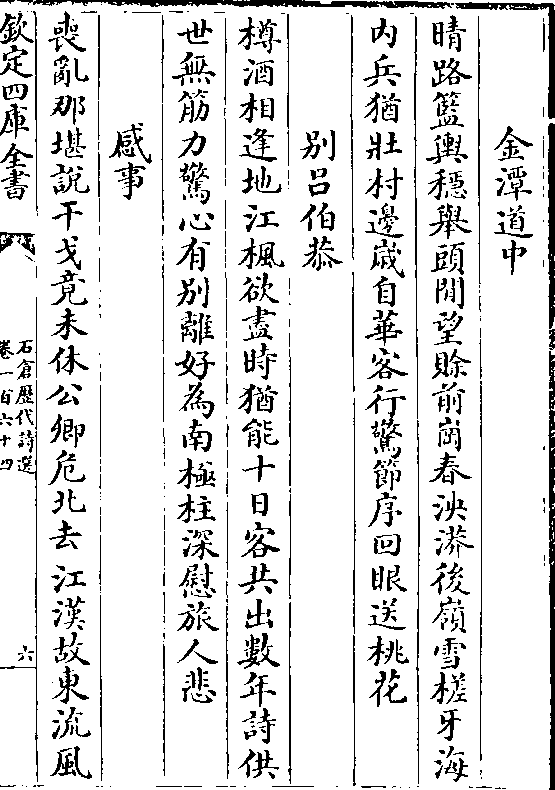 金潭道中
晴路籃輿穩舉頭閒望賖前崗春泱漭後嶺雪槎牙海
内兵猶壯村邊嵗自華客行驚節序回眼送桃花
别吕伯恭
樽酒相逢地江楓欲盡時猶能十日客共出數年詩供
世無筋力驚心有别離好為南極柱深慰旅人悲
感事
喪亂那堪說干戈竟未休公卿危北去江漢故東流風
欽定四庫全書
石倉歷代詩選
卷一百六十四
六